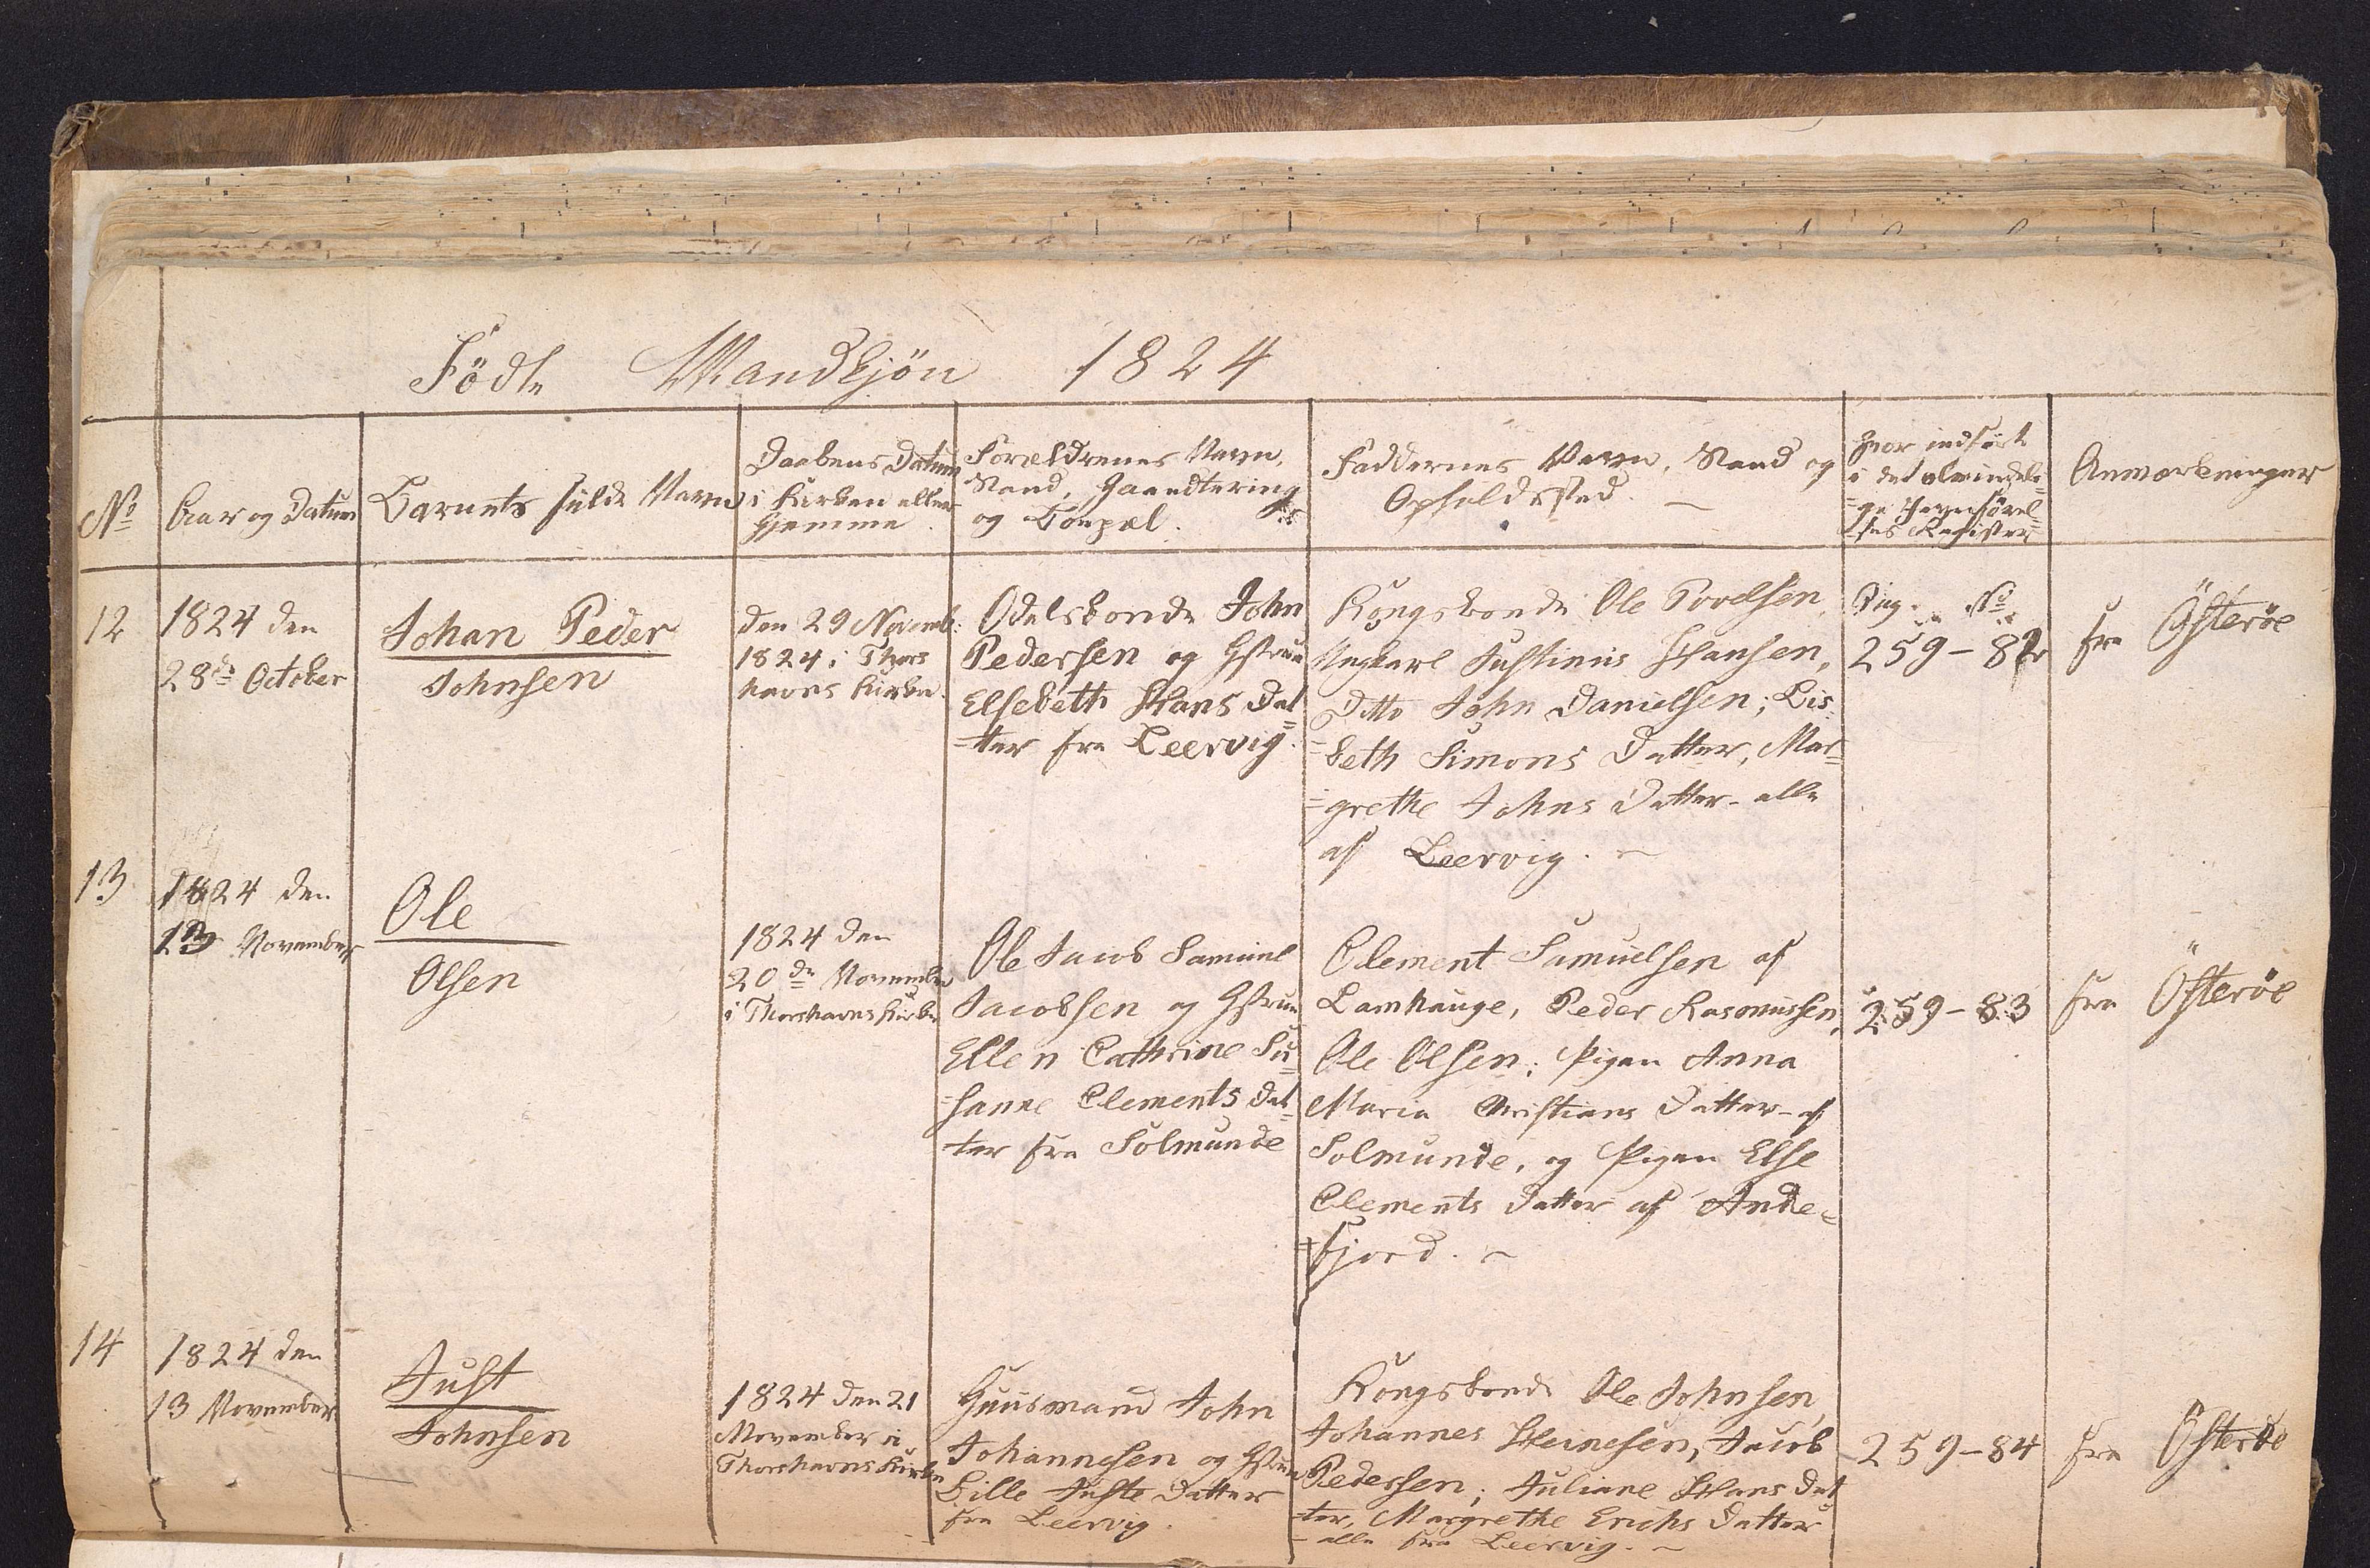 Födte Mandkjön 1824
No
Aar og Datum
Barnets fulde Navn
Daabens Datum
i Kirken eller
Hjemme.
Forældrenes Navn,
Stand, Haandtering
og Boepæl.
Faddernes Navn, Stand og
Opholdssted. —
Hvor indfört
i det almindeli-
=ge Jevnförel-
=ses Register
Anmærkninger
12
1824 den
28de October
Johan Peder
Johnsen
den 29 Novemb:
1824 i Thors
havns Kirke.
Odelsbonde John
Pedersen og Hstrue
Elsebeth Hans Dat=
=ter fra Leervig.
Kongsbonde Ole Povelsen,
Ungkarl Justinus Hansen,
Ditto John Danielsen; Lis=
=beth Simons Datter, Mar=
=grethe Johns Datter - alle
af Leervig. —
Pag. No
259 - 82
fra Österöe
13
1824 den
13 November
Ole
Olsen
1824 den
20de November
i Thorshavns Kirke
Ole Jacob Samuel
Jacobsen og Hstrue
Ellen Cathrine Su=
=sanne Clements Dat=
ter fra Solmunde
Clement Samuelsen af
Lamhauge, Peder Rasmussen,
Ole Olsen; Pigen Anna
Maria Christians Datter - af
Solmunde, og Pigen Else
Clements Datter af Ande=
=fjord. —
259 - 83
fra Österöe
14
1824 den
13 November
Just
Johnsen
1824 den 21
November i
Thorshavns Kirke
Huusmand John
Johannesen og Hstrue
Lille Juste Datter
fra Leervig.
Kongsbonde Ole Johnsen,
Johannes Heinesen, Jacob
Pedersen; Juliane Hans Dat
=ter, Margrethe Erichs Datter
- alle fra Leervig. —
259 - 84
fra Österöe